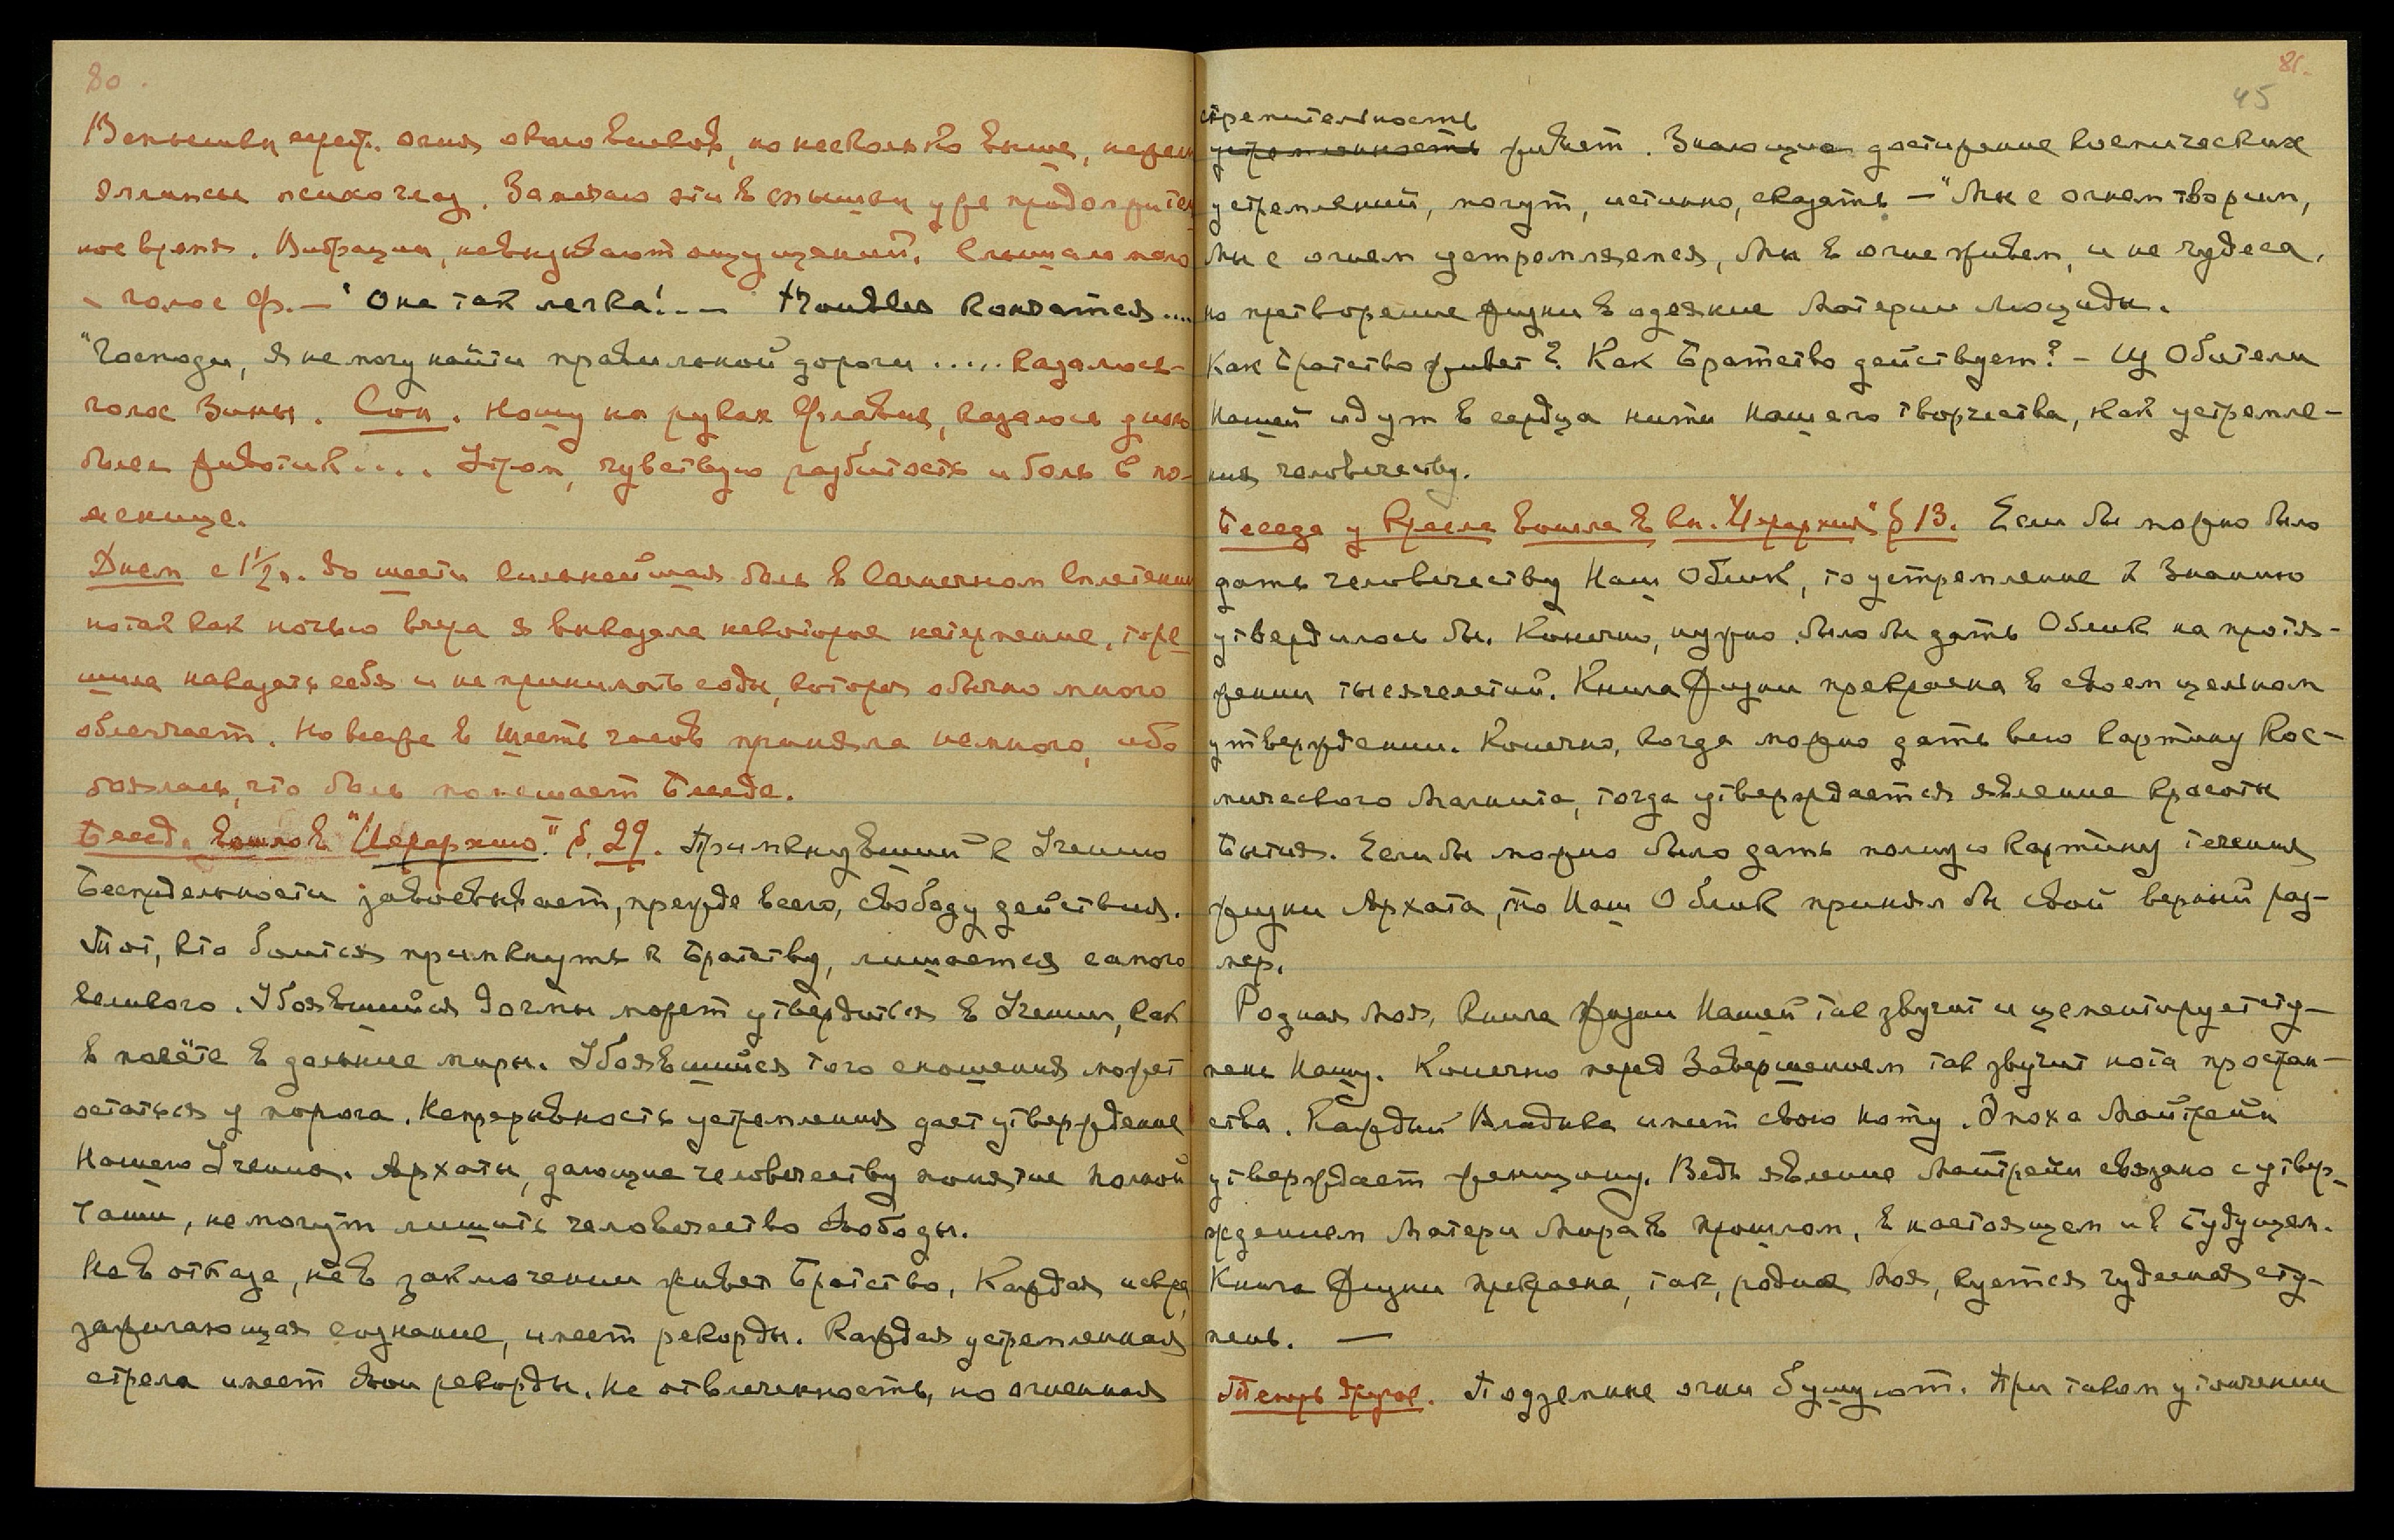 80.
Вспышки сереб. огня около висков, но несколько выше, перем
эллипсы психогляд. Замечаю эти вспышки уже продолжитель
ное время. Вибрации, невидывают ощущений. Слышала много
голос Ф. — "Она так легка!.. — troubles кончатся....
"Господи, я не могу найти правильной дороги ..... казалось-
голос Зины. Сон. Ношу на руках Флавия, казалось, дию
были животик.... Утром, чувствую разбитость и боль в по-
яснице.
Днем с 1 1/2 ч. до шести сильнейшая боль в солнечном сплетении
но так как ночью вчера я выказала некоторое нетерпение, то ре
шила наказать себя и не принимать соды, которая обычно много
облегчает. Но все же в шесть часов приняла немного, ибо
боялась, что боль помешает Беседе.
Бесед. вошло в "Иерархию". §. 29. Примкнувший к Учению
Беспредельности завоевывает, прежде всего, свободу действия.
Тот, кто боится примкнуть к Братству, лишается самого
великого. Убоявшийся догмы может утвердиться в Учении, как
в полёте в дальние миры. Убоявшийся того сношения может
остаться у порога. Непрерывность устремления дает утверждение
Нашего Учения. Архаты, дающие человечеству понятие полной
Чаши, не могут лишить человечество свободы.
Не в отказе, не в заключении живет Братство. Каждая искра,
зажигающая сознание, имеет рекорды. Каждая устремленная
стрела имеет свои рекорды. Не отвлеченность, но огненная
81.
45
стремительность
устремленность живет. Знающие достижение космических
устремлений, могут, истинно, сказать — "Мы с огнем творим,
Мы с огнем устремляемся, Мы в огне живем, и не чудеса,
но претворение жизни в одеяние Материи Люциды.
Как Братство живет? Как Братство действует? - Из Обители
Нашей идут в сердца нити Нашего творчества, как устремле-
ния человечеству.
Беседа у Кресла вошла в кн. "Иерархия" § 13. Если бы можно было
дать человечеству Наш Облик, то устремление к Знанию
утвердилось бы. Конечно, нужно было бы дать Облик на протя-
жении тысячелетий. Книга Жизни прекрасна в своем цельном
утверждении. Конечно, когда можно дать всю картину Кос-
мического Магнита, тогда утверждается явление красоты
Бытия. Если бы можно было дать полную картину течения
жизни Архата, то Наш Облик принял бы свой верный раз-
мер.
Родная Моя, Книга Жизни Нашей так звучит и цементирует сту-
пень Нашу. Конечно перед Завершением так звучит нота простран-
ства. Каждый Владыка имеет свою ноту. Эпоха Майтрейи
утверждает женщину. Ведь явление Майтрейи связано с утвер-
ждением Матери Мира в прошлом, в настоящем и в будущем.
Книга Жизни прекрасна, так, родная Моя, куется чудесная сту-
пень. —
Теперь другое. Подземные огни бушуют. При таком утончении